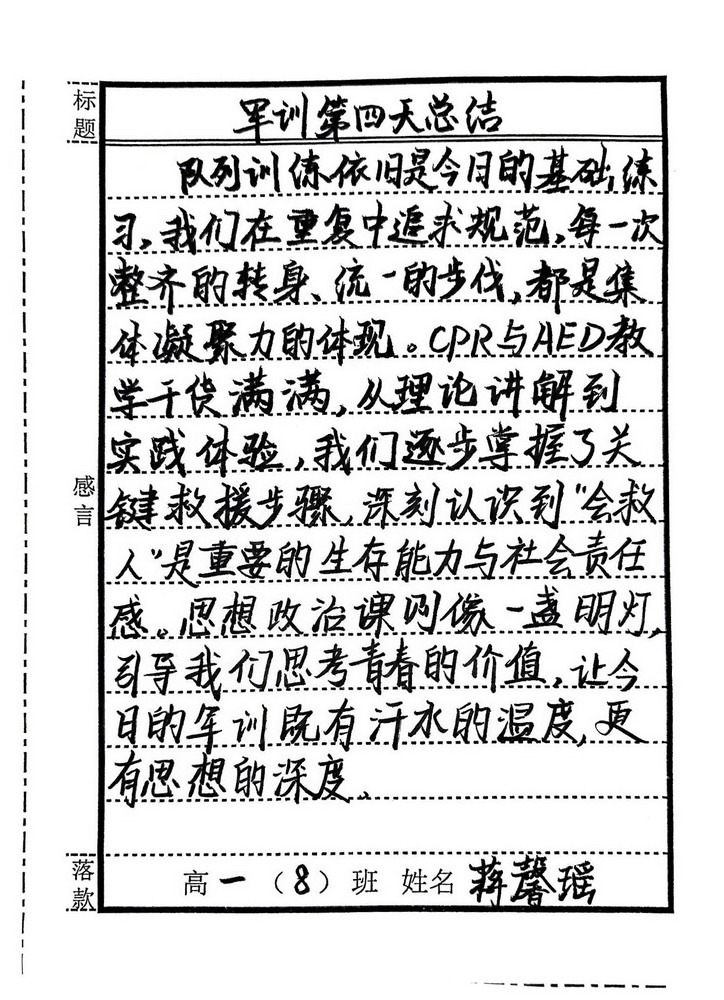 标题
军训第四天总结
队列训练依旧是今日的基础练
习,我们在重复中追求规范,每一次
整齐的转身、统一的步伐,都是集
体凝聚力的体现。CPR与AED教
学干货满满,从理论讲解到
实践体验,我们逐步掌握了关
键救援步骤,深刻认识到"会救
人"是重要的生存能力与社会责任
感。思想政治课则像一盏明灯,
引导我们思考青春的价值,让今
日的军训既有汗水的温度,更
有思想的深度。
感言
落款
高一(8)班 姓名 蒋馨瑶